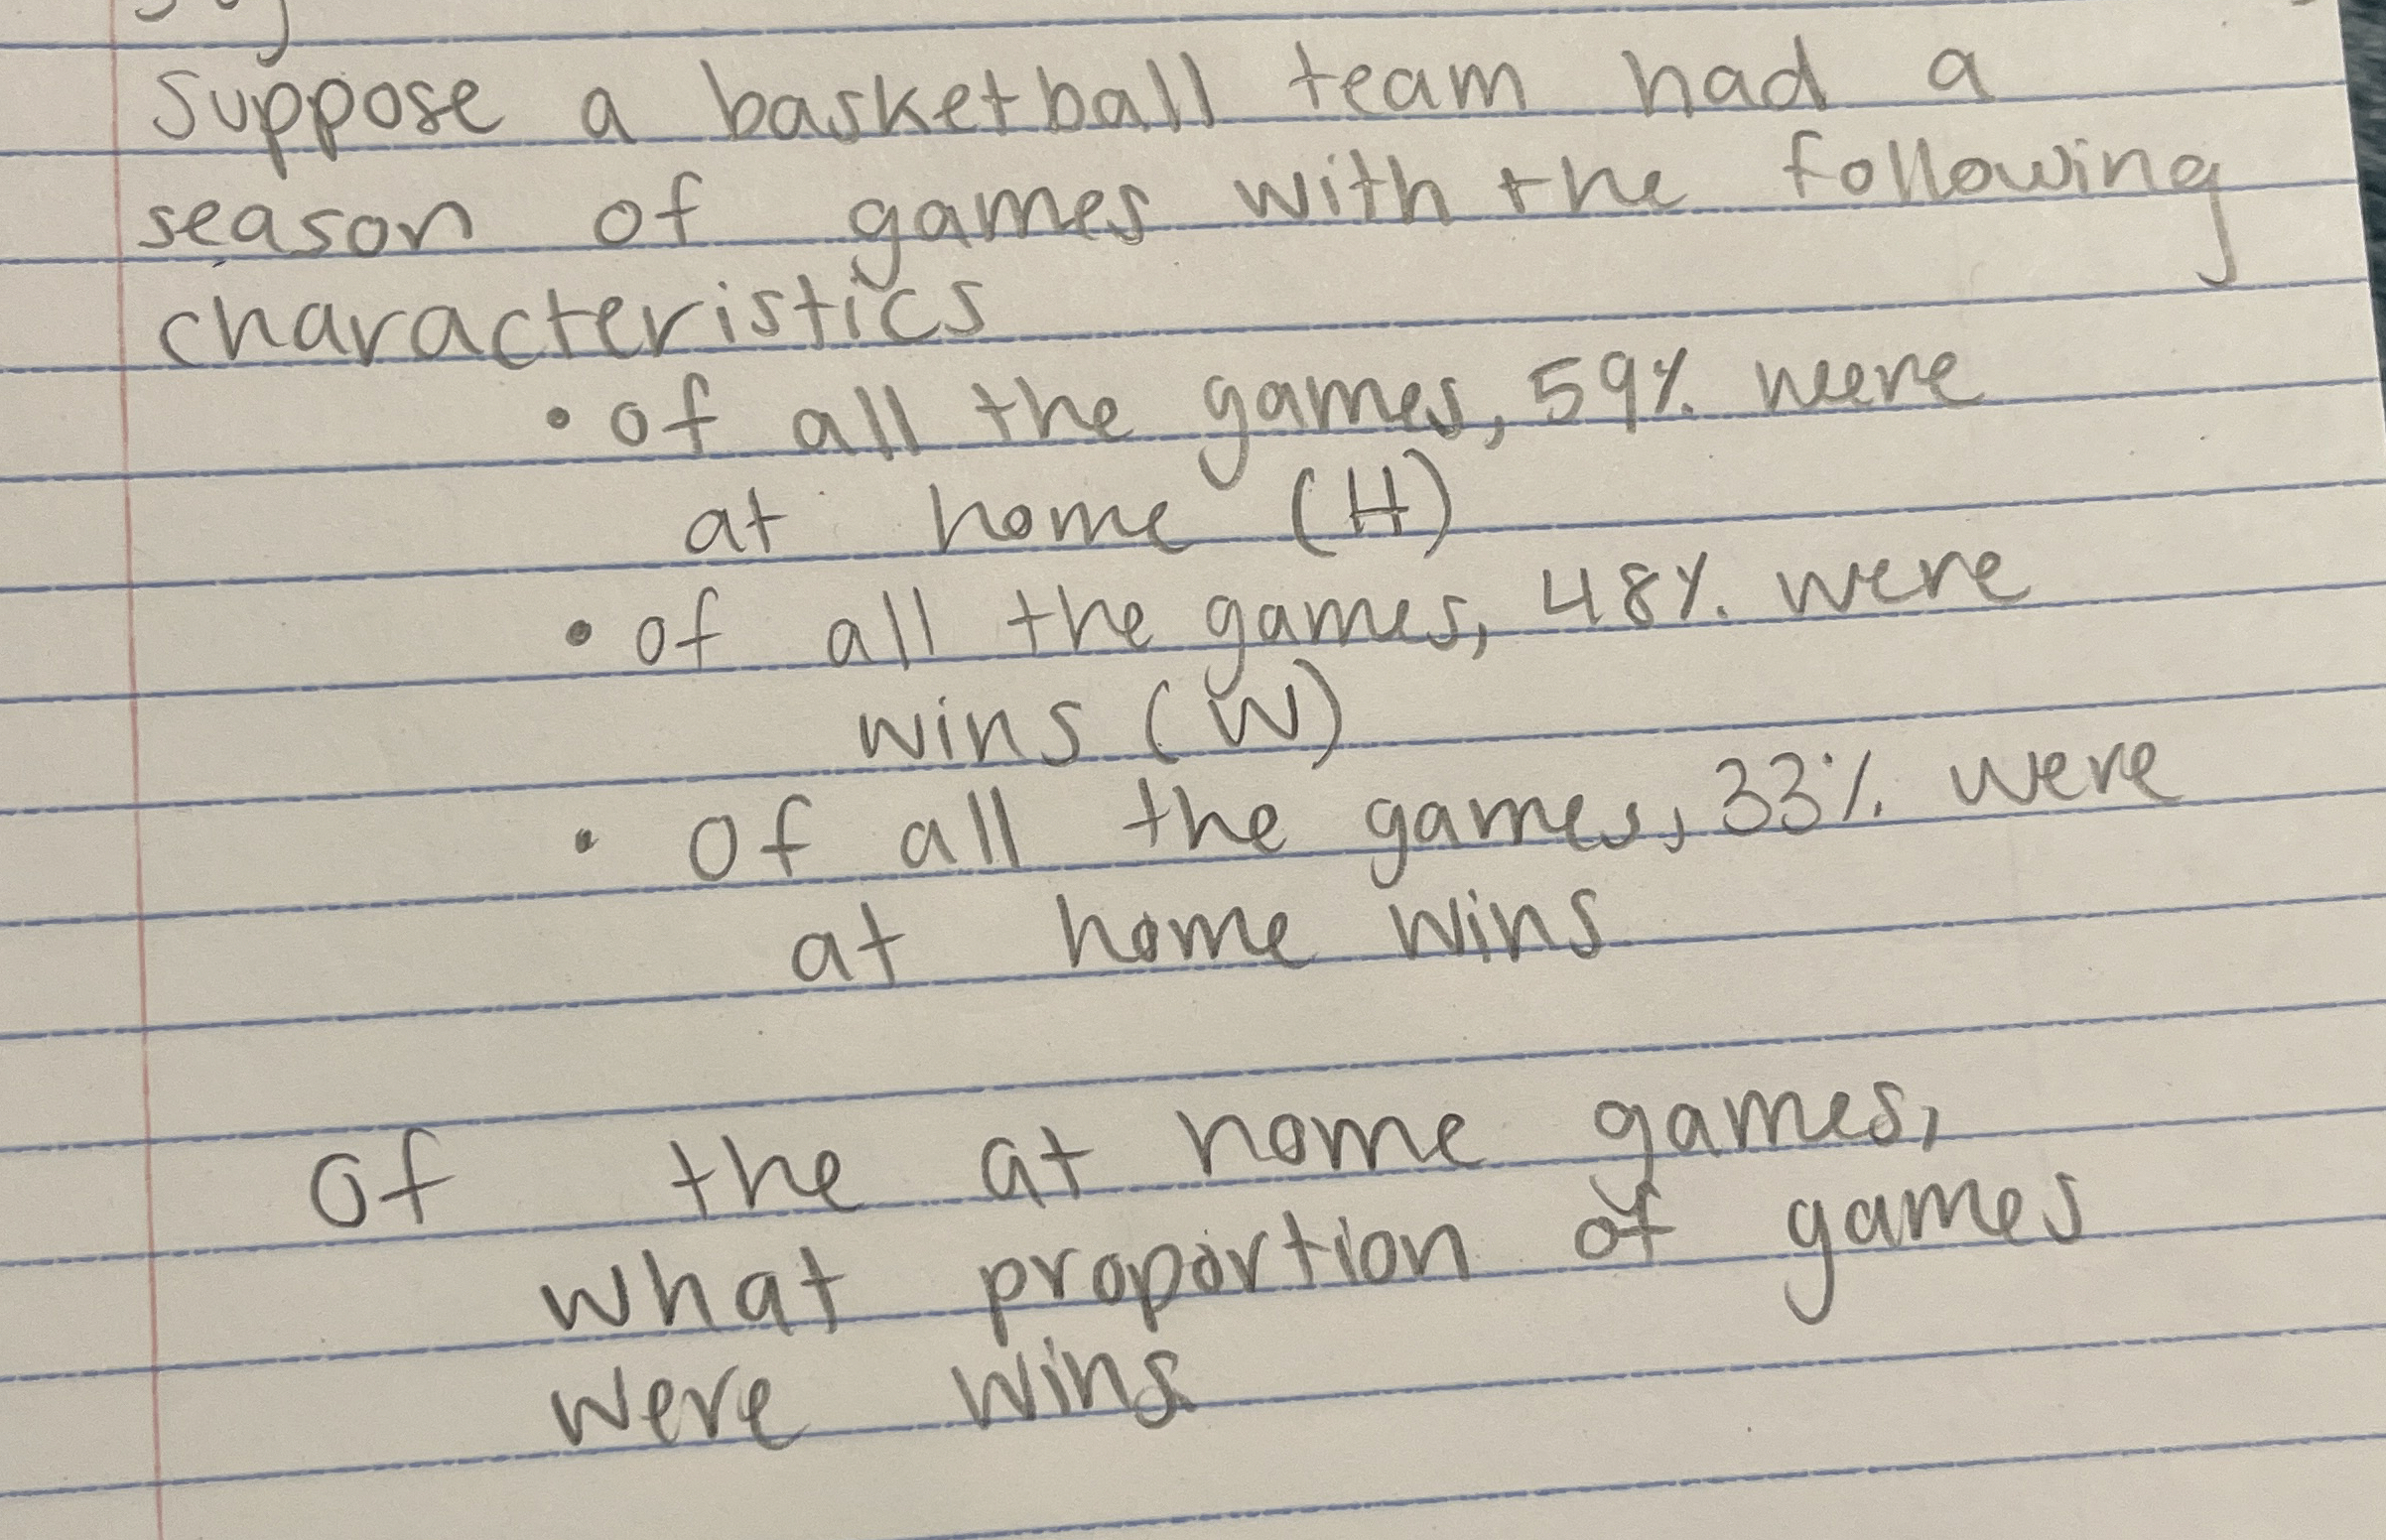 Suppose a basketball team had a
season of games with the following
characteristics
• of all the games, 59% were
at home (H)
• of all the games, 48% were
wins (W)
• Of all the games, 33% were
at home wins
Of the at home games,
what proportion of games
were wins